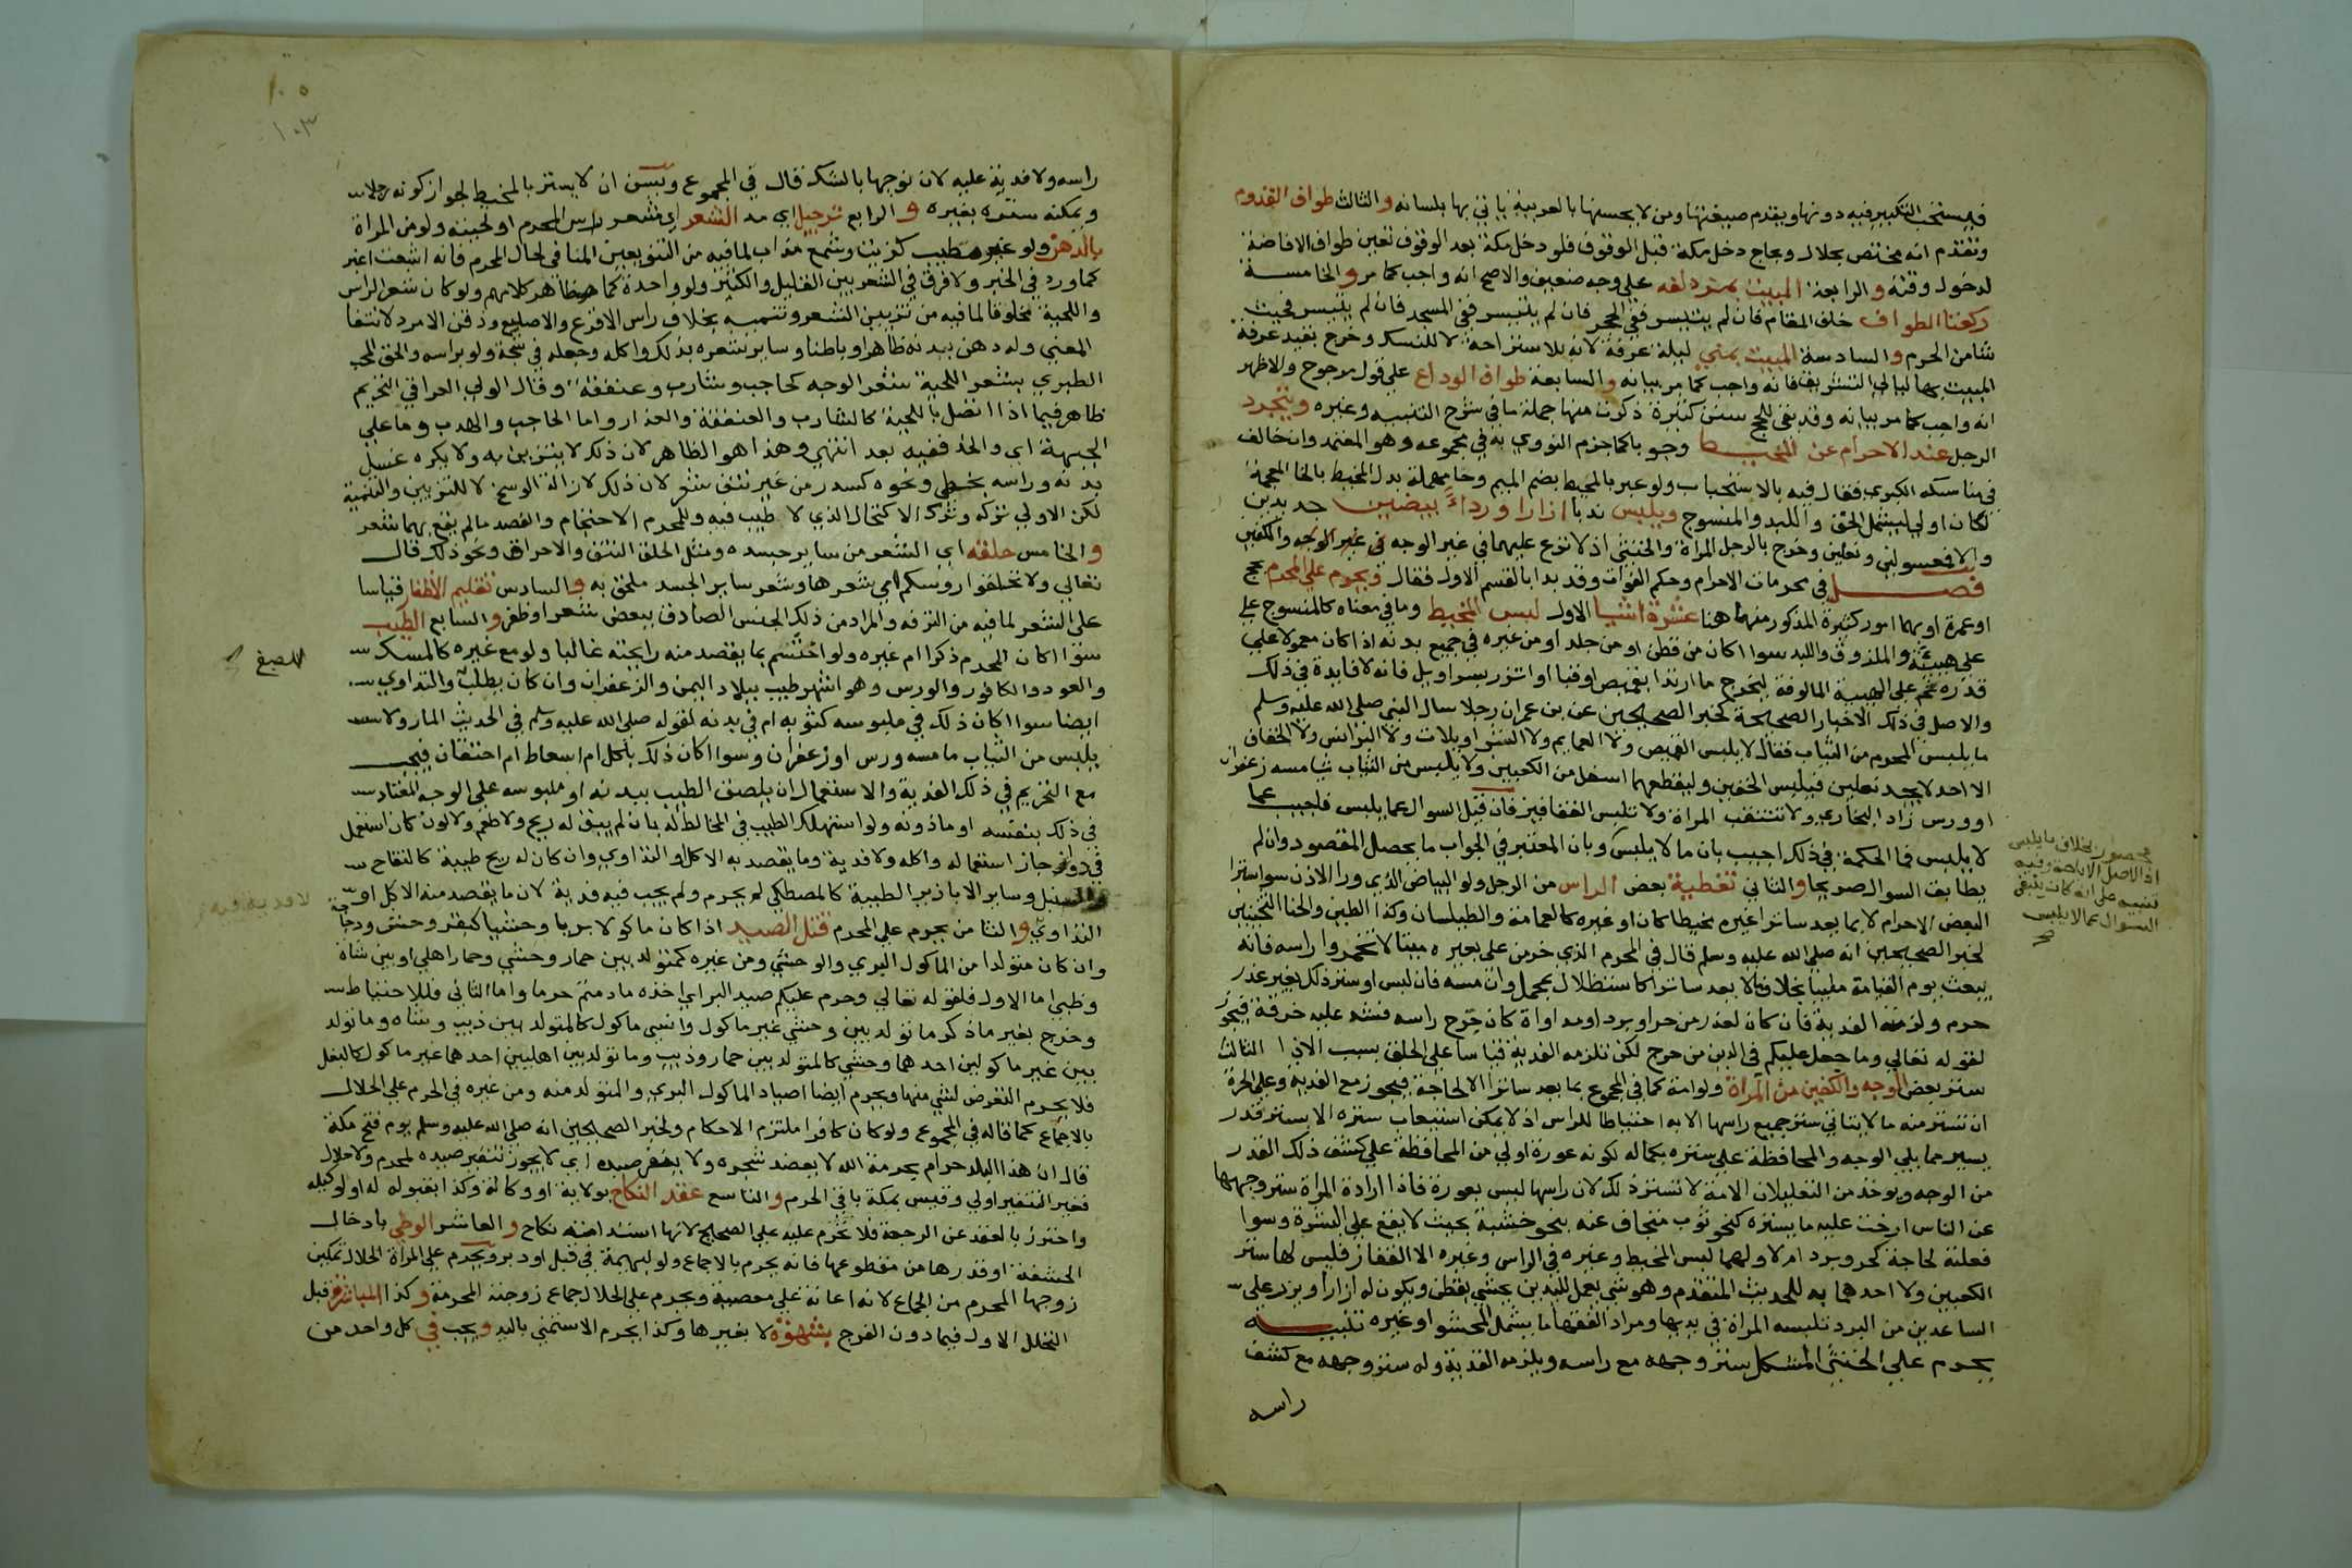 فيستحب التكبير فيه دونها ويقدم صيغتها ومن لا يحسنها بالعربية ياتي بها بلسانه والثالث طواف القدوم
وتقدم انه مختص بحلال وبحاج دخل مكة قبل الوقوف فلو دخل مكة بعد الوقوف تعين طواف الافاضة
لدخول وقته والرابعة المبيت بمزدلفه على وجه ضعيف والاصح انه واجب كما مر والخامسة
ركعتا الطواف خلف المقام فان لم يتيسر ففي الحجر فان لم يتيسر ففي المسجد فان لم يتيسر فحيث
شا من الحرم والسادسة المبيت بمني ليلة عرفة لانه للاستراحة لا للنسك وخرج بقيد عرفة
المبيت بها ليالي التشريق فانه واجب كما مر بيانه والسابعة طواف الوداع على قول مرجوح والاظهر
انه واجب كما مر بيانه وقد بقي للحج سنن كثيرة ذكرت منها جملة في شرح التنبيه وغيره ويتجرد
الرجل عند الاحرام عن المخيط وجوبا كما جزم النووي به في مجموعه وهو المعتمد وان خالف
في مناسكه الكبرى فقال فيه بالاستحباب ولو عبر بالمحيط بضم الميم وحا مهملة بدل المخيط بالخا المعجمة
لكان اولي ليشمل الخف واللبد والمنسوج ويلبس ندبا ازارا ورداء ابيضين جديدين
والا فمغسولين ونعلين وخرج بالرجل المراة والخنثي اذ لا نزع عليهما في غير الوجه والكفين
فصل في محرمات الاحرام وحكم الفوات وقد بدا بالقسم الاول فقال ويحرم علي المحرم بحج
او عمرة او بهما امور كثيرة المذكور منها هنا عشرة اشيا الاول لبس المخيط وما في معناه كالمنسوج علي
هيئته والملزوق واللبد سوا اكان من قطن او من جلد او من غيره في جميع بدنه اذا كان معمولا علي
قدره علي الهيئة المالوفة ليخرج ما اذا ارتدا بقميص او قبا او اتزر بسراويل فانه لا فدية في ذلك
والاصل في ذلك الاخبار الصحيحة كخبر الصحيحين عن بن عمر ان رجلا سال النبي صلى الله عليه وسلم
ما يلبس المحرم من الثياب فقال لا يلبس القميص ولا العمايم ولا السراويلات ولا البرانس ولا الخفاف
الا احد لا يجد نعلين فيلبس الخفين وليقطعهما اسفل من الكعبين ولا يلبس من الثياب شيا مسه زعفران
او ورس زاد البخاري ولا تنتقب المراة ولا تلبس القفازين فان قيل السوال عما يلبس فاجيب عما
لا يلبس فما الحكمة في ذلك اجيب بان ما لا يلبس وبان المعتبر في الجواب ما يحصل المقصود وان لم
يطابق السوال صريحا والثاني تغطية بعض الراس من الرجل ولو البياض الذي ورا الاذن سوا ستر
البعض الاخر ام لا بما يعد ساترا غيره مخيطا كان او غيره كالعمامة والطيلسان وكذا الطين والحنا الثخينين
لخبر الصحيحين انه صلى الله عليه وسلم قال في المحرم الذي خر من على بعيره ميتا لا تخمروا راسه فانه
يبعث يوم القيامة ملبيا بخلاف ما لا يعد ساترا كاستظلال بمحمل وان مسه فان لبس او ستر ذلك بغير عذر
حرم ولزمته الفدية فان كان لعذر من حر او برد او مداواة كان جرح راسه فشد عليه خرقة فيجوز
لقوله تعالي وما جعل عليكم في الدين من حرج لكن تلزمه الفدية قياسا على الحلق بسبب الاذي الثالث
ستر بعض الوجه والكفين من المراة ولو امة كما في المجموع بما يعد ساترا الا لحاجة فيجوز مع الفدية وعلي الحرة
ان تستر منه ما لا يتاتي ستر جميع راسها الا به احتياطا للراس اذ لا يمكن استيعاب ستره الا بستر قدر
يسير مما يلي الوجه والمحافظة على ستره بكماله لكونه عورة اولي من المحافظة علي كشف ذلك القدر
من الوجه ويوخذ من التعليل ان الامة لا تستر ذلك لان راسها ليس بعورة فاذا ارادة المراة ستر وجهها
عن الناس ارخت عليه ما يستره كنحو ثوب متجاف عنه بنحو خشبة بحيث لا يقع علي البشرة وسوا
فعلته لحاجة كحر وبرد ام لا ولهما لبس المخيط وغيره في الراس وغيره الا القفاز فليس لها ستر
الكفين ولا احدهما به للحديث المتقدم وهو شي يعمل لليدين يحشي بقطن ويكون له ازرار ويزر على
الساعدين من البرد تلبسه المراة في يديها ومراد الفقها ما يشمل المحشو او غيره تنبيه
يحرم على الخنثي المشكل ستر وجهه مع راسه ويلزمه الفدية وله ستر وجهه مع كشف
راسه
محصور بخلاف ما يلبس
اذ الاصل الاباحة وفيه
تنبيه على انه كان ينبغي
السوال عما لا يلبس
صح
راسه ولا فدية عليه لانا نوجبها بالشك قال في المجموع ويسن ان لا يستتر بالمخيط لجواز كونه رجلا
ويمكنه ستره بغيره والرابع ترجيل اي مد الشعر اي شعر راس المحرم او لحيته ولو من المراة
بالدهن ولو غير مطيب كزيت وشمع مذاب لما فيه من التزيين المنافي لحال المحرم فانه اشعث اغبر
كما ورد في الخبر ولا فرق في الشعر بين القليل والكثير ولو واحدة كما هو ظاهر كلامهم ولو كان شعر الراس
واللحية محلوقا لما فيه من تزيين الشعر وتنميته بخلاف راس الاقرع والاصلع وذقن الامرد لانتفا
المعني وله دهن بدنه ظاهرا وباطنا وساير شعره بذلك واكله وجعله في شجة ولو براسه والحق المحب
الطبري بشعر اللحية شعر الوجه كحاجب وشارب وعنفقة وقال الولي العراقي التحريم
ظاهر فيما اذا اتصل باللحية كالشارب والعنفقة والعذار واما الحاجب والهدب وما علي
الجبهة اي والخد ففيه بعد انتهي وهذا هو الظاهر لان ذلك لا يتزين به ولا يكره غسل
بدنه وراسه بخطمي ونحوه كسدر من غير نتف شعر لان ذلك لازالة الوسخ لا للتزيين والتنمية
لكن الاولي تركه وترك الاكتحال الذي لا طيب فيه وللمحرم الاحتجام والفصد ما لم يقع بهما شعر
والخامس حلقه اي الشعر من ساير جسده ومثل الحلق النتف والاحراق ونحو ذلك قال
تعالي ولا تحلقوا روسكم اي شعرها وشعر ساير الجسد ملحق به والسادس تقليم الاظفار قياسا
على الشعر لما فيه من الترفه والمراد من ذلك الجنس الصادق ببعض شعر او ظفر والسابع الطيب
سوا اكان المحرم ذكرا ام غيره ولو اخشم بما يقصد منه رايحته غالبا ولو مع غيره كالمسك
والعود والكافور والورس وهو اشهر طيب ببلاد اليمن والزعفران وان كان يطلب والتداوي
ايضا سوا اكان ذلك في ملبوسه كثوبه ام في بدنه لقوله صلى الله عليه وسلم في الحديث المار ولا
يلبس من الثياب ما مسه ورس او زعفران وسوا اكان ذلك باكل ام اسعاط ام احتقان فيجب
مع التحريم في ذلك الفدية والاستعمال ان يلصق الطيب ببدنه او ملبوسه على الوجه المعتاد
في ذلك بنفسه او ماذونه ولو استهلك الطيب في المخالط له بان لم يبق له ريح ولا طعم ولا لون كان استعمل
في دوا جاز استعماله واكله ولا فدية وما يقصد به الاكل او التداوي وان كان له ريح طيبة كالتفاح
والسنبل وساير الابازير الطيبة كالمصطكي لم يحرم ولم يجب فيه فدية لان ما يقصد منه الاكل او
التداوي والثامن يحرم علي المحرم قتل الصيد اذا كان ماكولا بريا وحشيا كبقر وحش ودجاجة
وان كان متولدا من الماكول البري والوحشي ومن غيره كمتولد بين حمار وحشي وحمار اهلي او بين شاة
وظبي اما الاول فلقوله تعالي وحرم عليكم صيد البر اي اخذه ما دمتم حرما واما الثاني فللاحتياط
وخرج بغير ما ذكر ما تولد بين وحشي غير ماكول وانسي ماكول كالمتولد بين ذيب وشاه وما تولد
بين غير ماكولين احدهما وحشي كالمتولد بين حمار وذيب وما تولد بين اهليين احدهما غير ماكول كالبغل
فلا يحرم التعرض لشي منها ويحرم ايضا اصياد الماكول البري والمتولد منه ومن غيره في الحرم علي الحلال
بالاجماع كما قاله في المجموع ولو كان كافرا ملتزم الاحكام ولخبر الصحيحين انه صلى الله عليه وسلم يوم فتح مكة
قال ان هذا البلد حرام بحرمة الله لا يعضد شجره ولا ينفر صيده اي لا يجوز تنفير صيده لمحرم ولا حلال
فغير التنفير اولي وقيس بمكة باقي الحرم والتاسع عقد النكاح بولاية او وكالة وكذا بقبوله له او لوكيله
واحترز بالعقد عن الرجعة فلا تحرم عليه على الصحيح لانها استدامة نكاح والعاشر الوطي بادخال
الحشفة او قدرها من مقطوعها فانه يحرم بالاجماع ولو لبهيمة في قبل او دبر ويحرم علي المراة الحلال تمكين
زوجها المحرم من الجماع لانه اعانة على معصية ويحرم على الحلال جماع زوجته المحرمة وكذا المباشرة قبل
التحلل الاول فيما دون الفرج بشهوة لا بغيرها وكذا يحرم الاستمني باليد ويجب في كل واحد من
للصبغ
لا فدية فيه
١٠٥
١٠٣